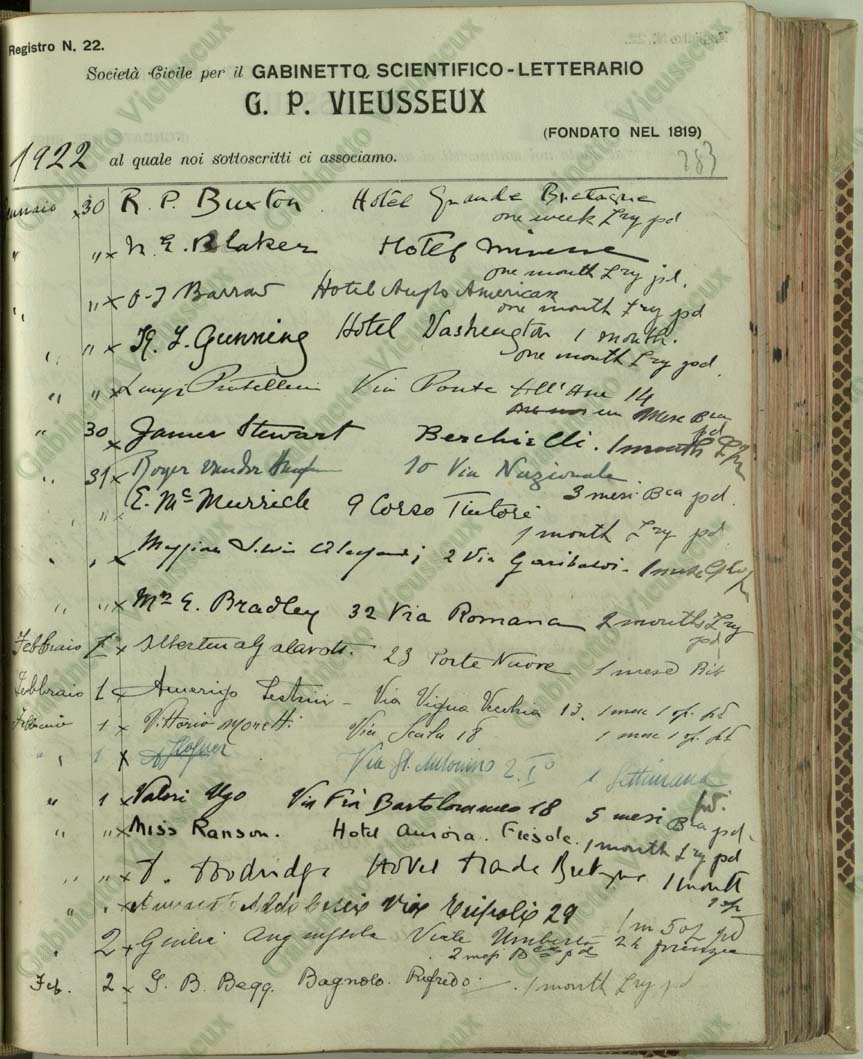 Registro N. 22.
Società Civile per il GABINETTO SCIENTIFICO-LETTERARIO
G. P. VIEUSSEUX
(FONDATO NEL 1819)
1922 al quale noi sottoscritti ci associamo.
283
Gennaio x30 R. P. Buxton. Hotel Grande Bretagne
one week Lry pd
" " x N. E. Blaker Hotel Minerva
one month Lry pd.
" " x Barrow Hotel Anglo American
one month Lry pd
" " x Gunning Hotel Washington 1 month.
one month Lry pd
" " x Luigi Via Ponte All'Ane 14
un Mese Bca pd
" 30 x James Stewart Berchielli. 1 month
" 31 x Roger 10 Via Nazionale
3 mesi Bca pd.
" E. Mc Murrich 9 Corso Tintori
1 month Lry pd
" x 2 Via Garibaldi. 1 mese
" " x Mrs E. Bradley 32 Via Romana 2 months Lry
pd
Febbraio 1 x Albertina Galavotti. 23 Ponte Nuove 1 mese Bib
Febbraio 1 x Amerigo Via Vigna Vecchia 13. 1 mese 1 op. pd
Febbraio 1 x Vittorio Moretti Via Scala 18 1 mese 1 op. pd
" 1 x Via St. Antonino 2. I° 1 Settimana
pd.
" 1 x Valori Ugo Via Frà Bartolommeo 18 5 mesi Bca pd.
" " x Miss Ranson. Hotel Aurora. Fiesole. 1 month Lry pd
" " x Hotel Grande Bretagne 1 month
" Via Tripoli 29
1 m 5 op pd
" 2 x Giulia Anguissola Viale Umberto 24 Firenze
2 mesi Bca pd
Feb. 2 x G. B. Begg. Bagnolo. Rifredo. 1 month Lry pd
Gabinetto Vieusseux